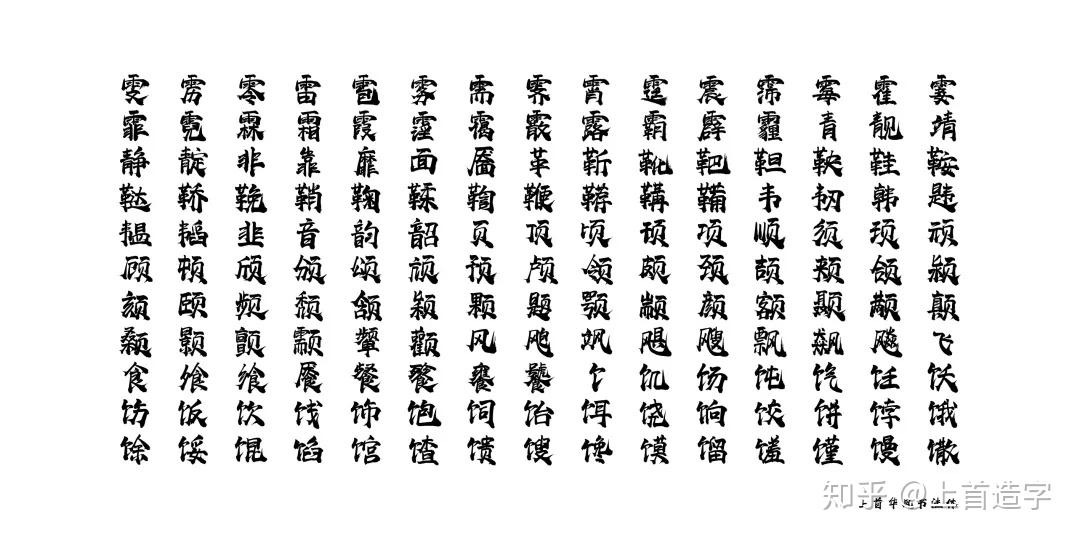 雯 雳 零 雷 雹 雾 需 霁 霄 霆 震 霈 霉 霍 霎
霏 霓 霖 霜 霞 霪 霭 霰 露 霸 霹 霾 青 靓 靖
静 靛 非 靠 靡 面 靥 革 靳 靴 靶 靼 鞅 鞋 鞍
鞑 鞒 鞔 鞘 鞠 鞣 鞫 鞭 鞯 鞲 鞴 韦 韧 韩 韪
韫 韬 韭 音 韵 韶 页 顶 顷 顸 项 顺 须 顼 顽
顾 顿 颀 颁 颂 颃 预 颅 领 颇 颈 颉 颊 颌 颍
颏 颐 频 颓 颔 颖 颗 题 颚 颛 颜 额 颞 颟 颠
颡 颢 颤 颥 颦 颧 风 飑 飒 飓 飕 飘 飙 飚 飞
食 飧 飨 餍 餐 餮 饔 饕 饣 饥 饧 饨 饩 饪 饫
饬 饭 饮 饯 饰 饱 饲 饴 饵 饶 饷 饺 饼 饽 饿
馀 馁 馄 馅 馆 馇 馈 馊 馋 馍 馏 馐 馑 馒 馓
知乎 @上首造字